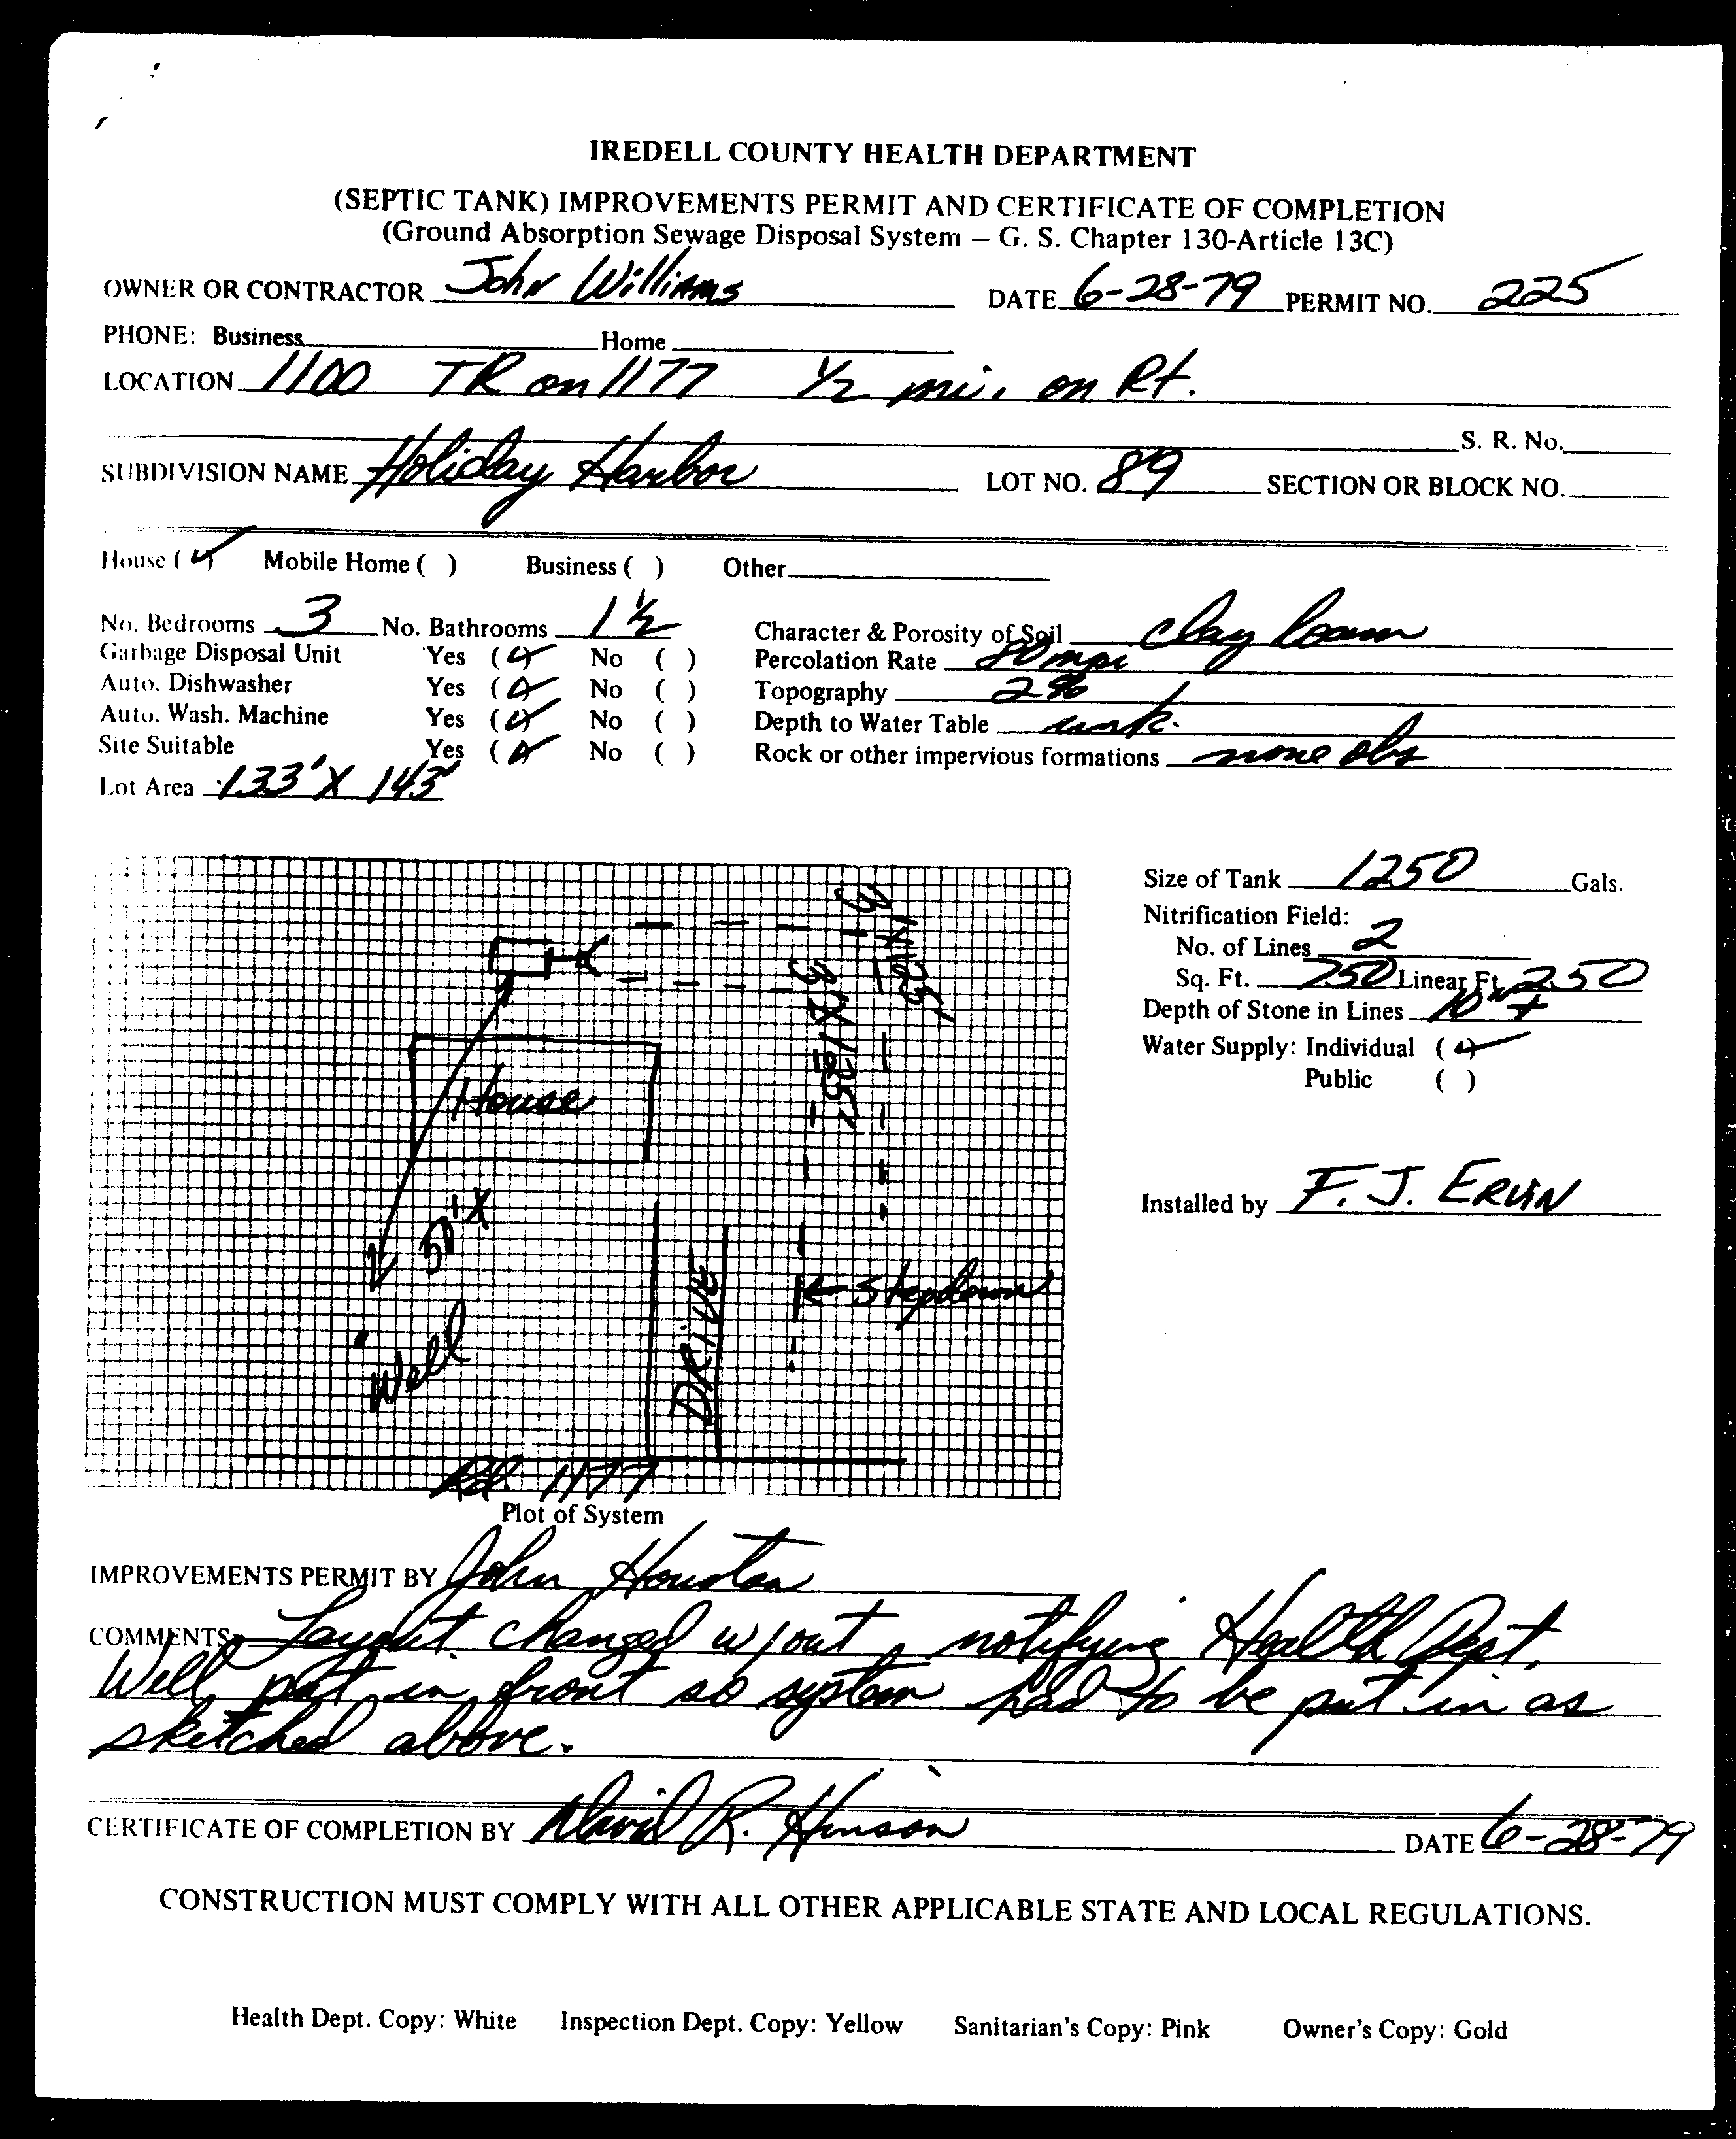 IREDELL COUNTY HEALTH DEPARTMENT
(SEPTIC TANK) IMPROVEMENTS PERMIT AND CERTIFICATE OF COMPLETION
(Ground Absorption Sewage Disposal System – G. S. Chapter 130-Article 13C)
OWNER OR CONTRACTOR John Williams DATE 6-28-79 PERMIT NO. 225
PHONE: Business Home
LOCATION 1100 TR on 1177 1/2 mi. on Rt.
S. R. No.
SUBDIVISION NAME Holiday Harbor LOT NO. 89 SECTION OR BLOCK NO.
House ( ) Mobile Home ( ) Business ( ) Other
No. Bedrooms 3 No. Bathrooms 1 1/2 Character & Porosity of Soil clay loam
Garbage Disposal Unit Yes ( ) No ( ) Percolation Rate 80 mpi
Auto. Dishwasher Yes ( ) No ( ) Topography 2%
Auto. Wash. Machine Yes ( ) No ( ) Depth to Water Table unk.
Site Suitable Yes ( ) No ( ) Rock or other impervious formations none obs
Lot Area 133' X 143'
Size of Tank 1250 Gals.
Nitrification Field:
No. of Lines 2
Sq. Ft. 750 Linear Ft. 250
Depth of Stone in Lines 10" +
Water Supply: Individual ( )
Public ( )
Installed by F. J. ERVIN
3' X 125'
3' X 125'
House
50' X
Well
DRIVE
← Stepdown
Rd. 1177
Plot of System
IMPROVEMENTS PERMIT BY John Houston
COMMENTS: Layout changed w/out notifying Health Dept.
Well put in front so system had to be put in as
sketched above.
CERTIFICATE OF COMPLETION BY David R. Hinson DATE 6-28-79
CONSTRUCTION MUST COMPLY WITH ALL OTHER APPLICABLE STATE AND LOCAL REGULATIONS.
Health Dept. Copy: White Inspection Dept. Copy: Yellow Sanitarian's Copy: Pink Owner's Copy: Gold